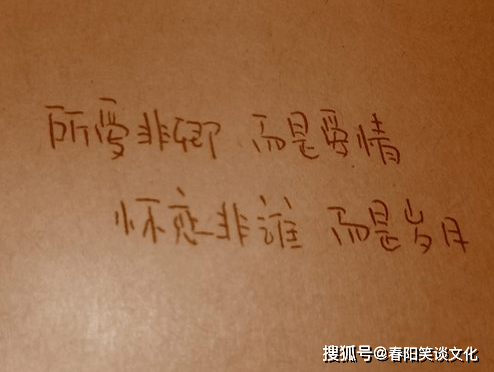 所爱非卿 而是爱情
怀恋非谁 而是岁月
搜狐号@春阳笑谈文化